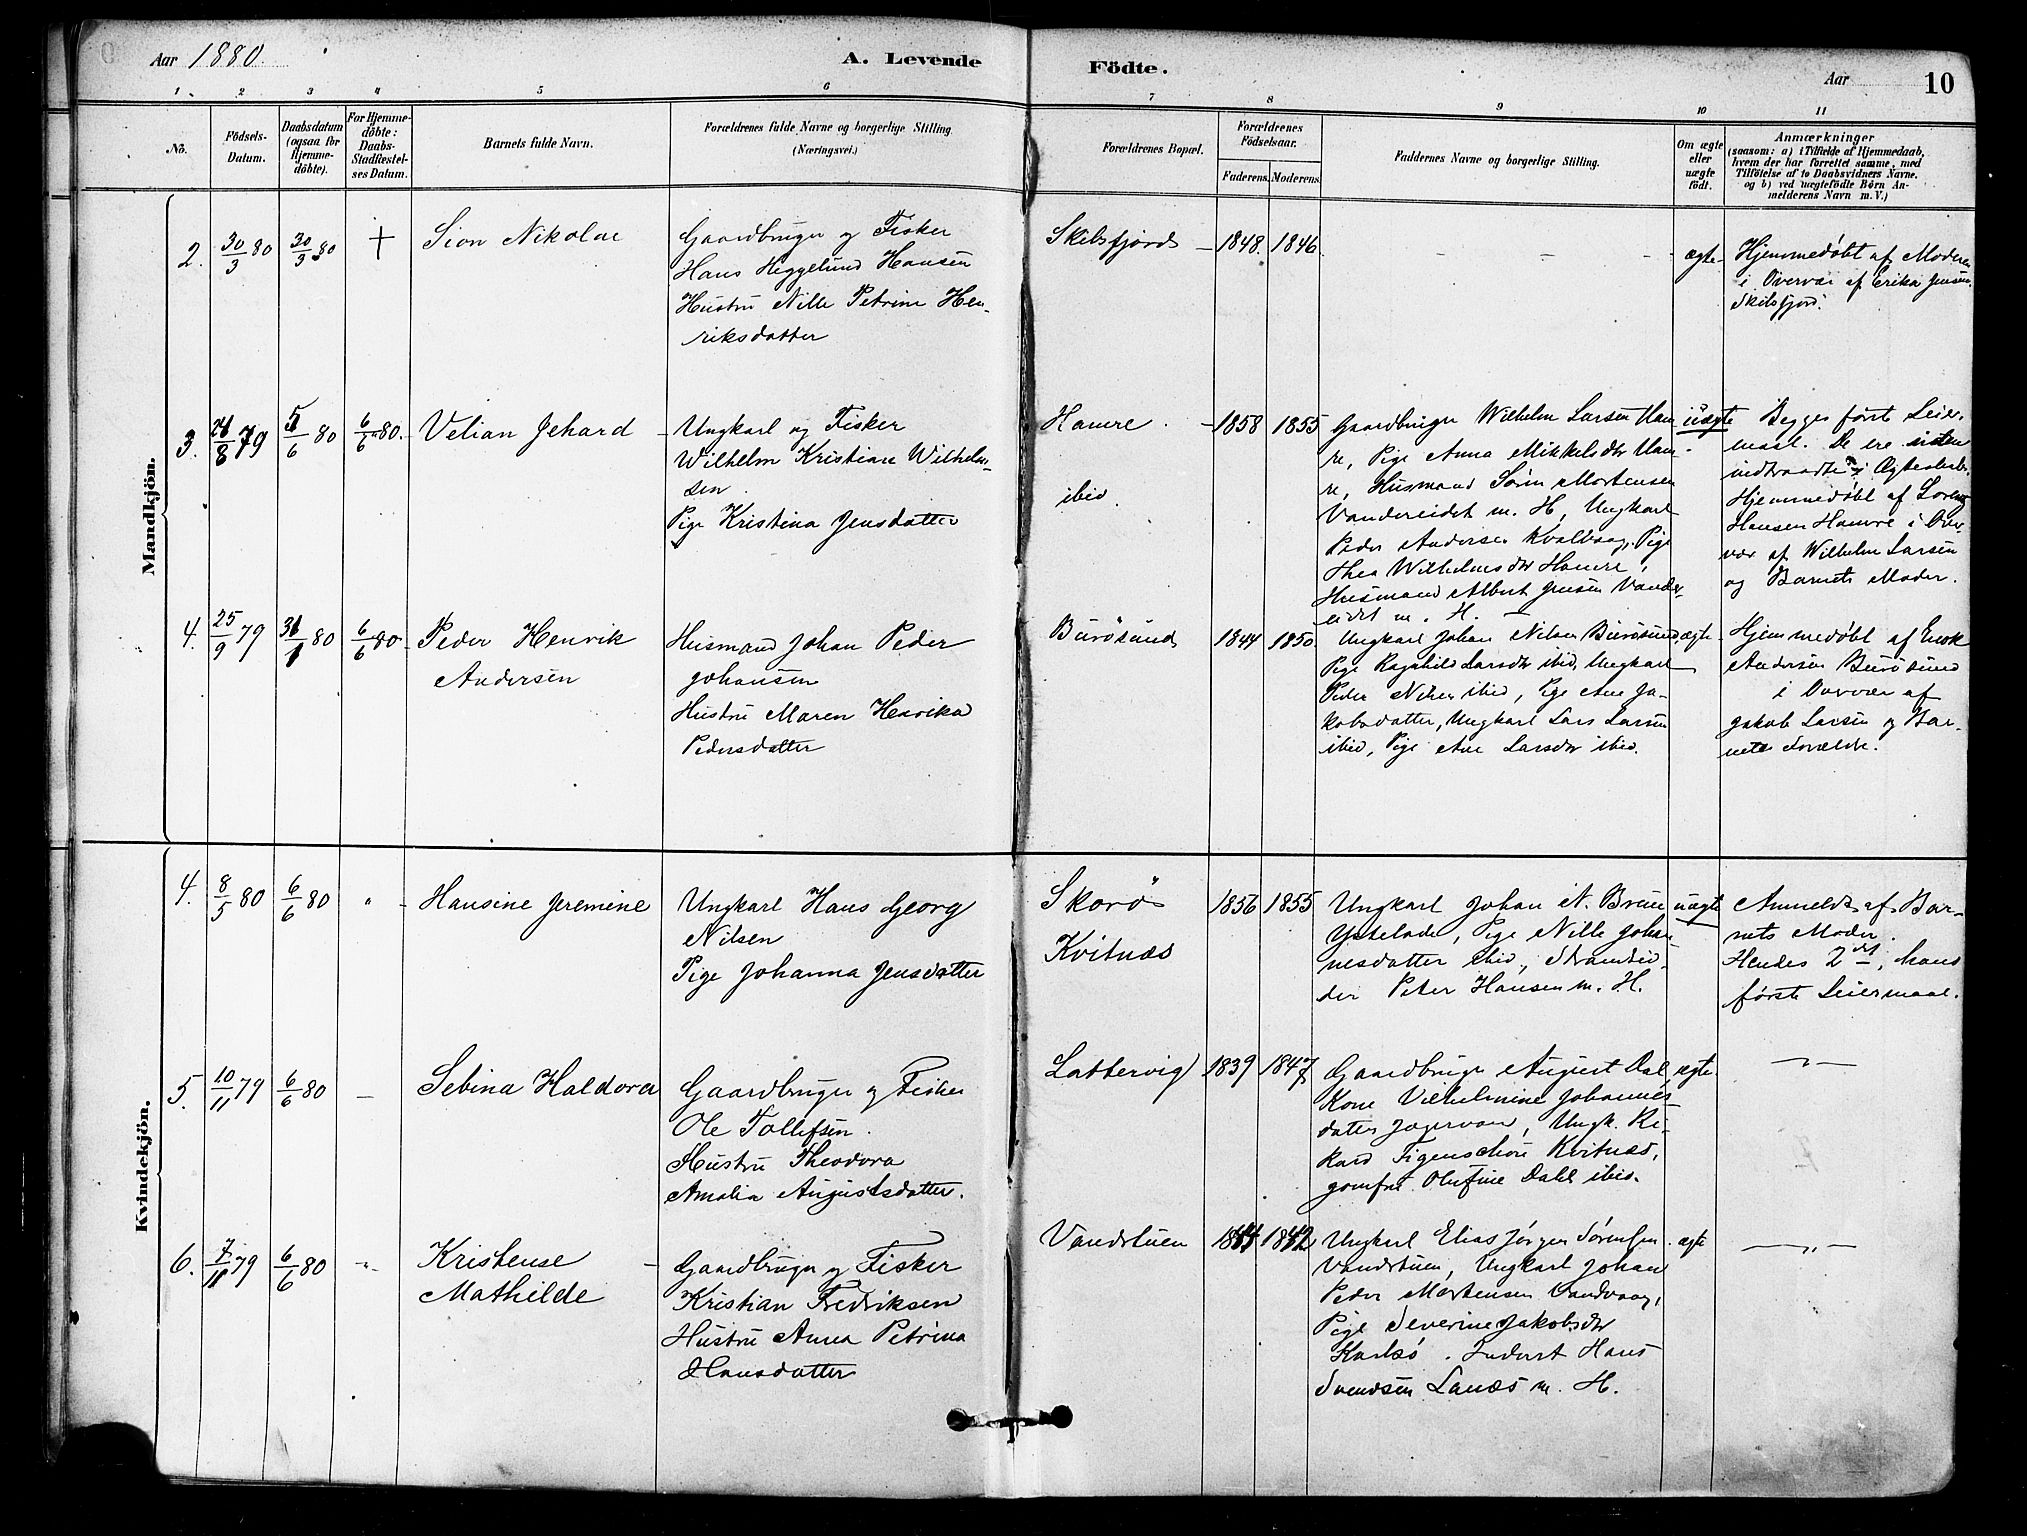 Aar 1880.
A. Levende Födte.
Aar
10
1 2 3 4 5 6 7 8 9 10 11
No.
Födsels-
Datum.
Daabsdatum
(ogsaa for
Hjemme-
döbte).
For Hjemme-
döbte:
Daabs-
Stadfæstel-
ses Datum.
Barnets fulde Navn.
Forældrenes fulde Navne og borgerlige Stilling.
(Næringsvei.)
Forældrenes Bopæl.
Forældrenes
Födselsaar.
Faderens. Moderens.
Faddernes Navne og borgerlige Stilling.
Om ægte
eller
uægte
födt.
Anmærkninger
(saasom: a) i Tilfælde af Hjemmedaab,
hvem der har forrettet samme, med
Tilföielse af to Daabsvidners Navne.
og b) ved uægtefödte Börn An-
melderens Navn m.V.)
Mandkjön.
2. 30/3 80 30/3 80 +
Sion Nikolai
Gaardbruger og Fisker
Hans Heggelund Hansen
Hustru Nille Petrine Hen-
riksdatter
Skibsfjord
1848. 1846.
ægte
Hjemmedøbt af Moderen
i Overvær af Erika Jensen
Skibsfjord.
3. 24/8 79 5/6 80 6/6 80.
Velian Jehard
Ungkarl og Fisker
Wilhelm Kristian Wilhelm-
sen.
Pige Kristina Jensdatter
Hamre.
ibid.
1858 1855
Gaardbruger Wilhelm Larsen Ham-
re, Pige Anna Mikkelsdtr Ham-
re, Husmand Sørin Mortensen
Vandereidet m. H, Ungkarl
Peder Andersen Kvalvaag, Pige
Thea Wilhelmsdtr Hamre,
Husmand Albert Jensen Vander-
eidet m. H.
uægte
Begges første Leier-
maal. De ere siden
indtraadte i Ægteskab.
Hjemmedøbt af Lorents
Hansen Hamre i Over-
vær af Wilhelm Larsen
og Barnets Moder.
4. 25/9 79 31/1 80 6/6 80
Peder Henrik
Andersen
Husmand Johan Peder
Johansen
Hustru Maren Henrika
Pedersdatter
Burøsund
1844 1850.
Ungkarl Johan Nilsen Burøsund,
Pige Ragnhild Larsdtr ibid, Ungkarl
Peder Nilsen ibid, Pige Ane Ja-
kobsdatter, Ungkarl Lars Larsen
ibid, Pige Ane Larsdtr ibid.
ægte
Hjemmedøbt af Enok
Andersen Burøsund
i Overvær af
Jakob Larsen og Bar-
nets Forældre.
Kvindekjön.
4. 8/5 80 6/6 80 "
Hansine Jeremine
Ungkarl Hans Georg
Nilsen
Pige Johanna Jensdatter
Skorø
Kvitnæs
1856 1855
Ungkarl Johan A. Bruun
Pige Nille Johan-
nesdatter ibid, Strandsid-
der Peter Hansen m. H.
uægte
Anmeldt af Bar-
nets Moder.
Hendes 2det, hans
første Leiermaal.
5. 10/11 79 6/6 80 —
Sebina Haldora
Gaardbruger og Fisker
Ole Tollefsen.
Hustru Theodora
Amalia Augustsdatter.
Lattervig
1839 1847
Gaardbruger August Dal,
Kone Vilhelmine Johannes-
datter Jægervan, Ungk. Ri-
kard Figenschou Kvitnæs,
Jomfru Olufine Dahl ibid.
ægte
— " —
6. 7/11 79 6/6 80 "
Kristense
Mathilde
Gaardbruger og Fisker
Kristian Fredriksen
Hustru Anna Petrina
Hansdatter
Vandstuen
1842
Ungkarl Elias Jørgen Sørensen
Vandstuen, Ungkarl Johan
Peder Mortensen Vandvaag,
Pige Severine Jakobsdtr
Karlsø. Inderst Hans
Svendsen Lanes m. H.
ægte
— " —